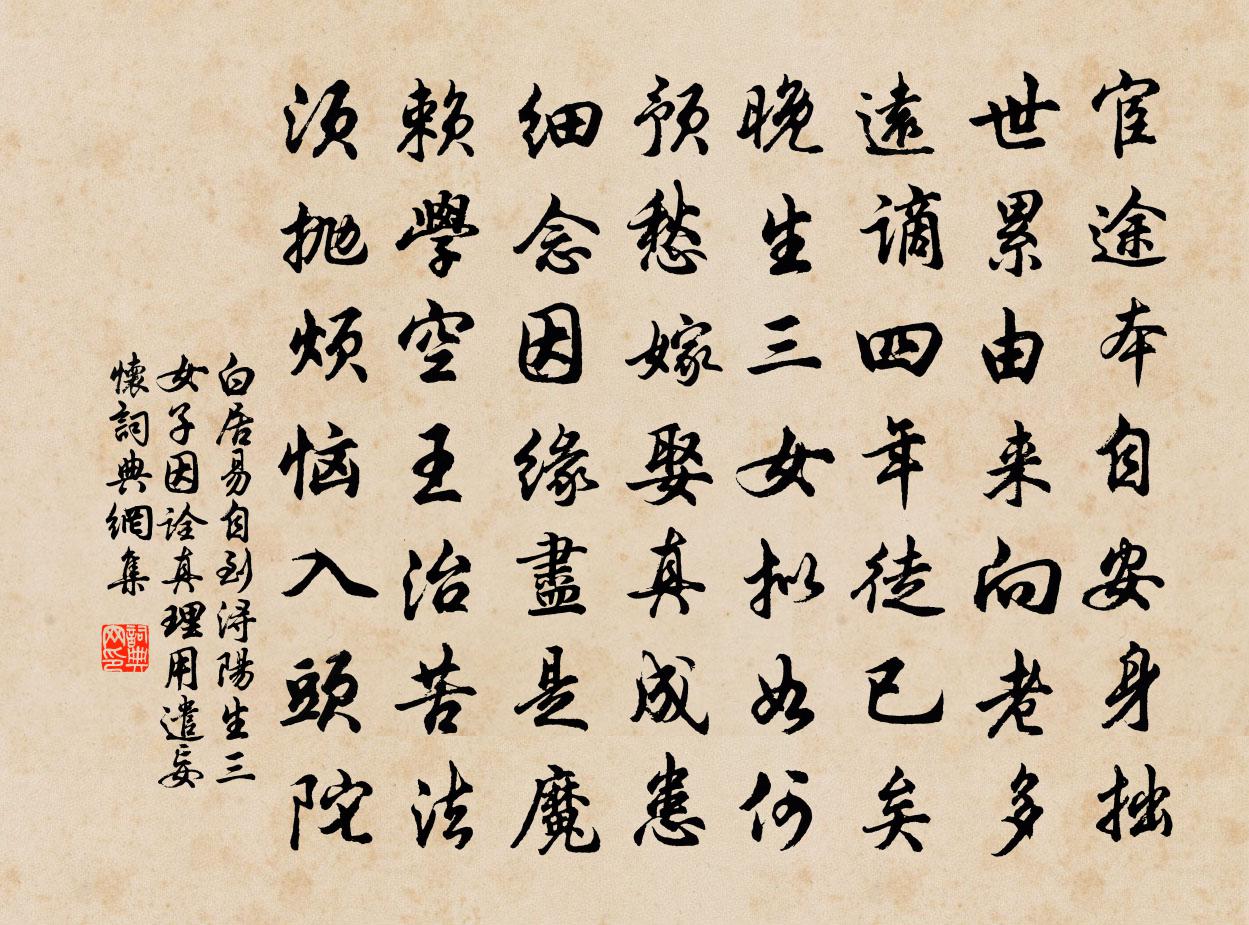 宦途本自安身拙
世累由来向老多
遠谪四年徒已矣
晚生三女拟如何
预愁嫁娶真成患
细念因缘盡是魔
赖學空王治苦法
须抛烦恼入頭陀
白居易自到浔陽生三
女子因诠真理用遣妄
懷詞典網集
詞典网印